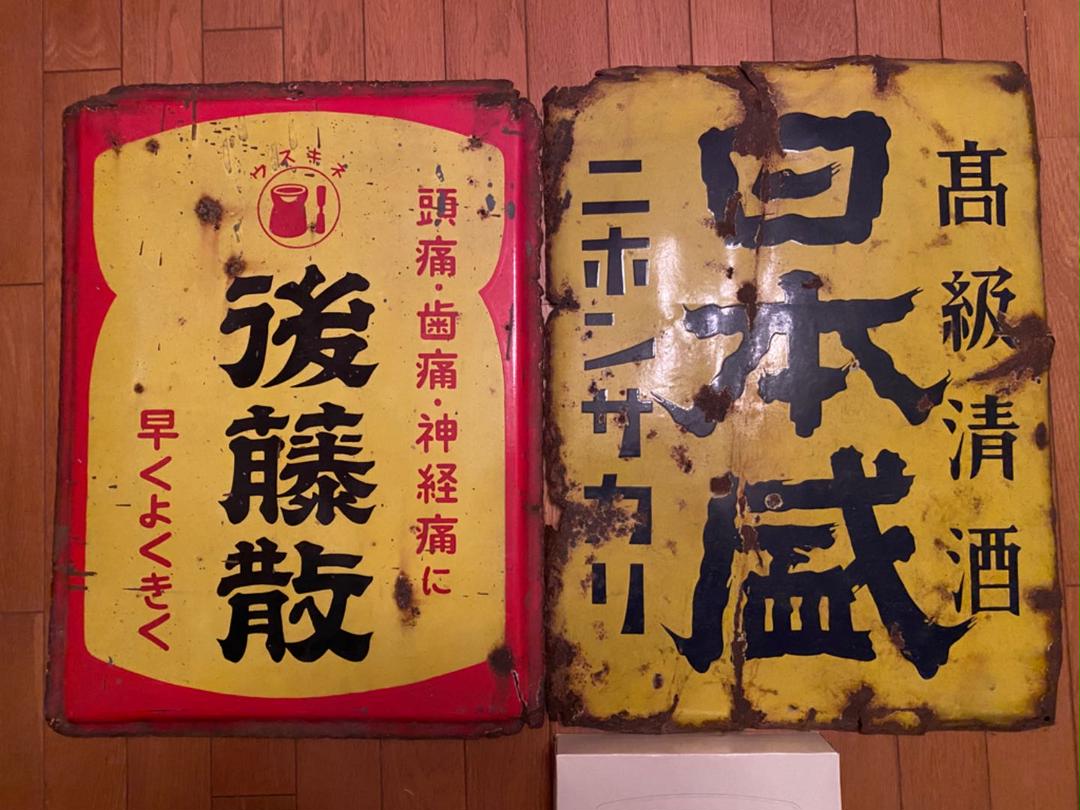 頭痛・歯痛・神経痛に
ウスキネ
後藤散
早くよくきく
髙級清酒
日本盛
ニホンサカリ